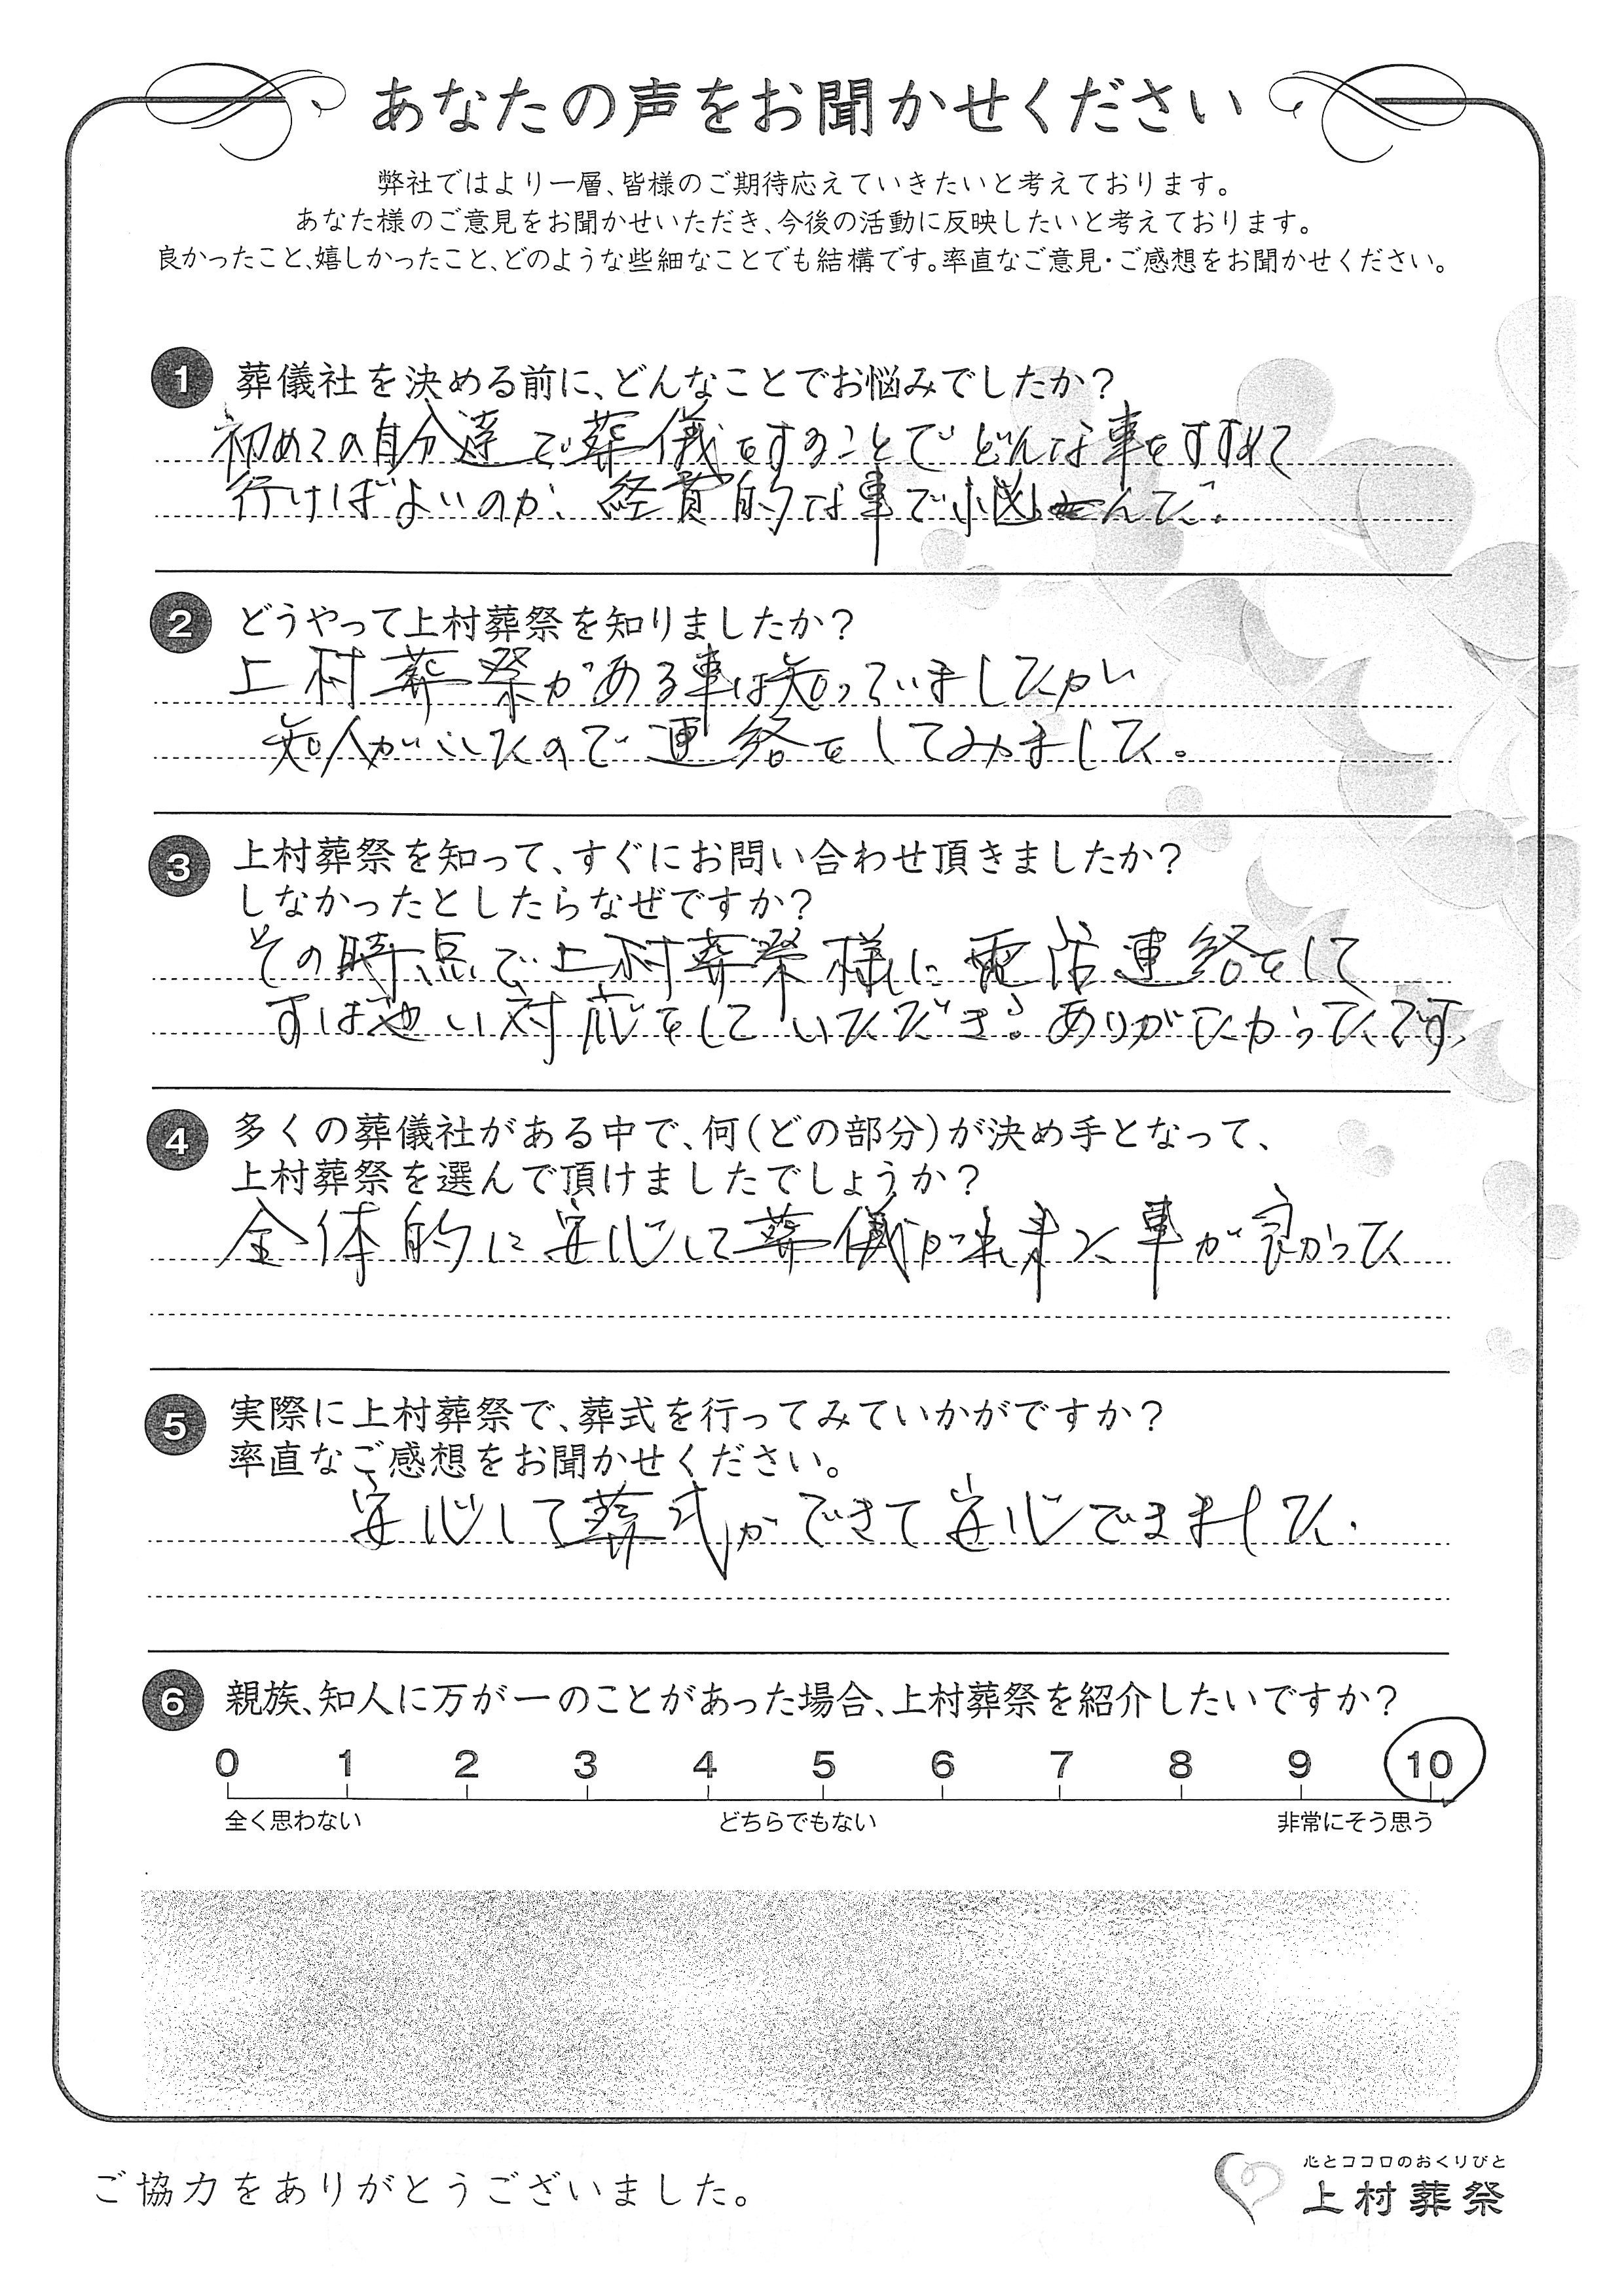 あなたの声をお聞かせください
弊社ではより一層、皆様のご期待応えていきたいと考えております。
あなた様のご意見をお聞かせいただき、今後の活動に反映したいと考えております。
良かったこと、嬉しかったこと、どのような些細なことでも結構です。率直なご意見・ご感想をお聞かせください。
1 葬儀社を決める前に、どんなことでお悩みでしたか?
初めての自分達で葬儀をすることでどんな事をすすめて
行けばよいのか、経費的な事で悩んだ。
2 どうやって上村葬祭を知りましたか?
上村葬祭がある事は知っていましたが
知人がいたので連絡をしてみました。
3 上村葬祭を知って、すぐにお問い合わせ頂きましたか?
しなかったとしたらなぜですか?
その時点で上村葬祭様に電話連絡をして
すば迅い対応をしていただき、ありがたかったです。
4 多くの葬儀社がある中で、何(どの部分)が決め手となって、
上村葬祭を選んで頂けましたでしょうか?
全体的に安心して葬儀が出来た事が良かった
5 実際に上村葬祭で、葬式を行ってみていかがですか?
率直なご感想をお聞かせください。
安心して葬式ができて安心できました。
6 親族、知人に万が一のことがあった場合、上村葬祭を紹介したいですか?
0 1 2 3 4 5 6 7 8 9 10
全く思わない どちらでもない 非常にそう思う
ご協力をありがとうございました。
心とココロのおくりびと
上村葬祭